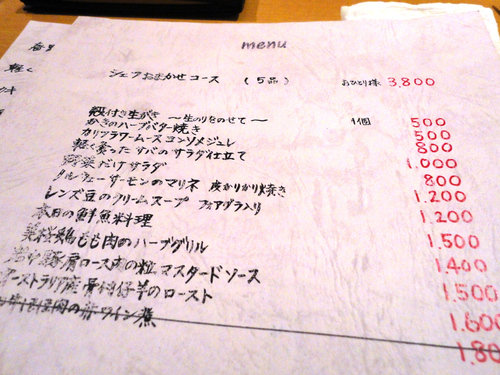 menu
シェフおまかせコース (5品) おひとり様 3,800
殻付き生がき 〜生のりをのせて〜 1個 500
かきのハーブバター焼き 500
カリフラワームース コンソメジュレ 800
軽く炙ったサバのサラダ仕立て 1,000
野菜だけサラダ 800
ノルウェーサーモンのマリネ 皮かりかり焼き 1,200
レンズ豆のクリームスープ フォアグラ入り 1,200
本日の鮮魚料理 1,500
鶏もも肉のハーブグリル 1,400
豚肩ロース肉の粒マスタードソース 1,500
オーストラリア産骨付仔羊のロースト 1,600
の赤ワイン煮 1,80
軽く